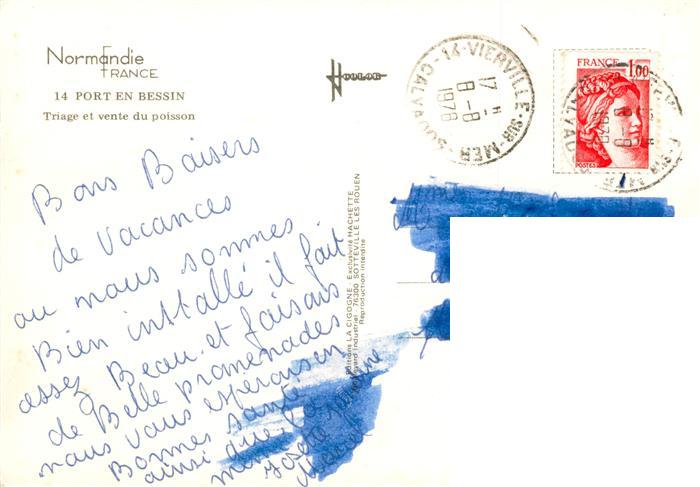 Normandie
FRANCE
14 PORT EN BESSIN
Triage et vente du poisson
HOULOR
14-VIERVILLE-SUR-MER
CALVADOS
17 H
8-8
1978
FRANCE
1,00
POSTES
Bons Baisers
de Vacances
ou nous sommes
Bien intallé il fait
assez Beau et faisans
de Belle promenades
nous vous esperons en
Bonnes santé
ainsi que la
Editions LA CIGOGNE - Exclusivité HACHETTE
Industriel - 76300 SOTTEVILLE LES ROUEN
Reproduction interdite